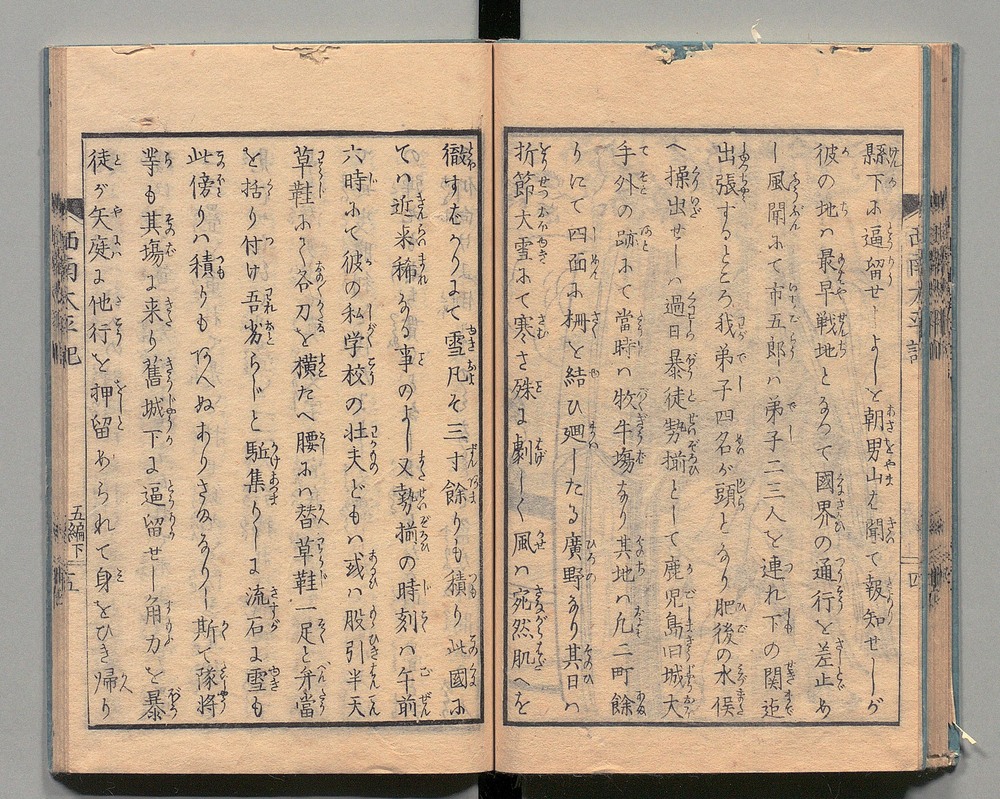 縣下に逼留せしよしを朝男山は聞て報知せしが
彼の地ハ最早戦地となつて國界の通行を差止め
し風聞にて市五郎ハ弟子二三人を連れ下の関迄
出張するところ我弟子四名が頭となり肥後の水俣
へ操出せしハ過日暴徒勢揃として鹿児島旧城大
手外の跡にて當時ハ牧牛場なり其地ハ凡二町餘
りにて四面に柵を結ひ廻したる廣野なり其日ハ
折節大雪にて寒さ殊に劇しく風ハ宛然肌へを
西南太平記
四
徹すばかりにて雪凡そ三寸餘りも積り此國に
てハ近来稀なる事のよし又勢揃の時刻ハ午前
六時にて彼の私学校の壮夫どもハ或ハ股引半天
草鞋にて各刀を横たへ腰にハ替草鞋一足と弁當
を括り付け吾劣らじと駈集りしに流石に雪も
此傍りハ積りもあへぬありさまなりし斯て隊将
等も其場に来り舊城下に逼留せし角力を暴
徒が矢庭に他行を押留められて身をひき帰り
西南太平記
五編下
五